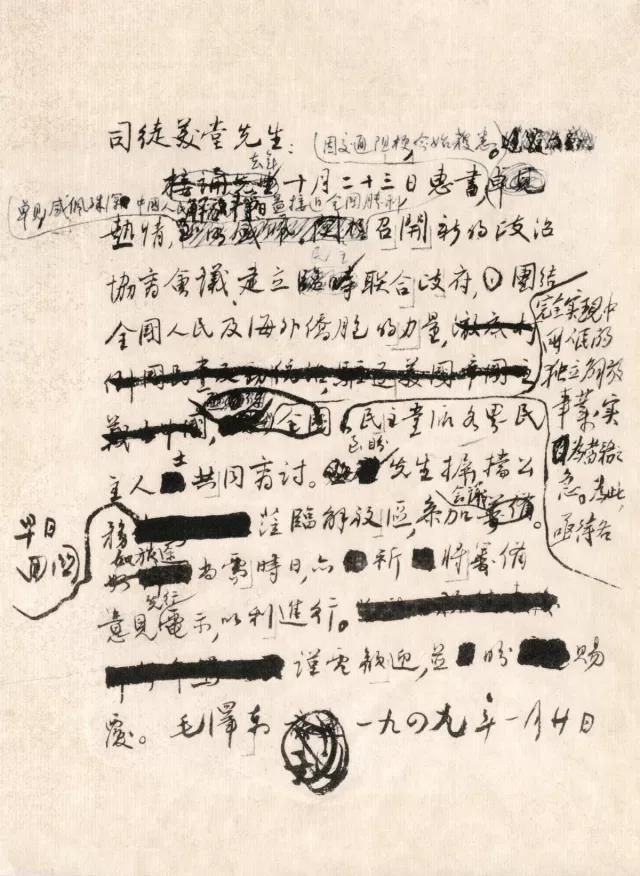 司徒美堂先生：
因交通阻梗，今始獲悉。
去年
十月二十三日惠書，
卓見，感佩殊深。中國人民解放鬥爭日益接近全國勝利
熱情，召開新的政治
民主
協商會議，建立聯合政府，團結
全國人民及海外僑胞的力量，
完全實現中
國人民的
獨立解放
事業，實
為當務之
急。為此，
亟待各
民主黨派各界民
主人士共同商討。至盼先生摒擋公
務
早日
回國
蒞臨解放區，參加會議。
如旅途尚需時日，亦祈將籌備
意見先行電示，以利進行。
謹電歡迎，並盼賜
覆。毛澤東 一九四九年一月廿日